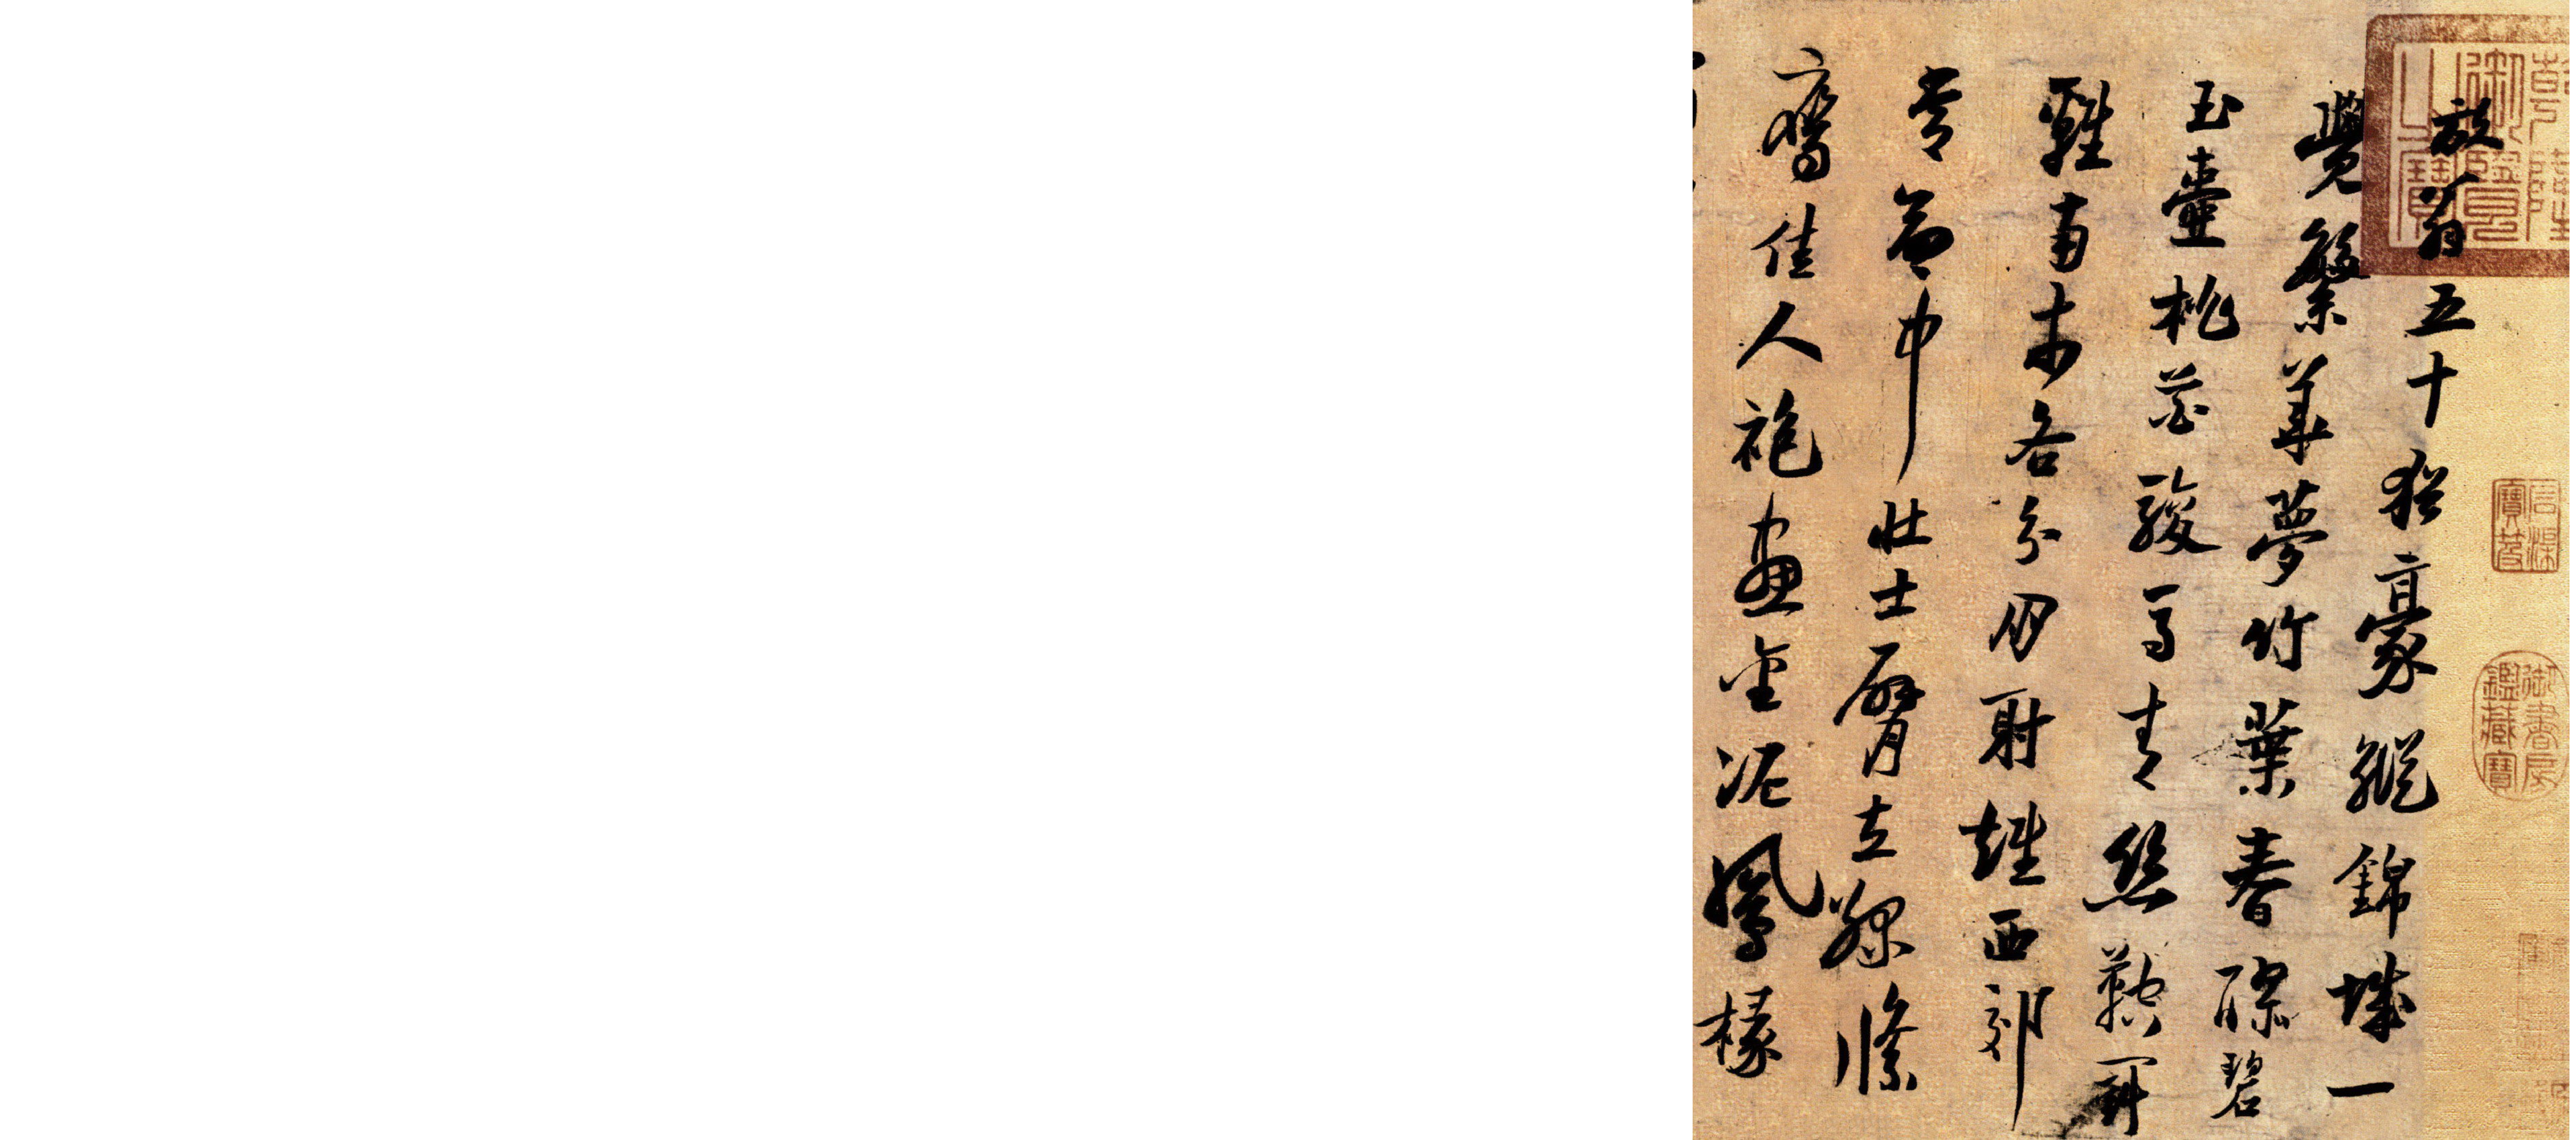 乾隆御覽之寶
石渠寶笈
御書房鑑藏寶
放翁五十猶豪縱錦城一
覺繁華夢竹葉春醪碧
玉壺桃花駿馬青絲鞚鬥
雞南市各分朋射雉西郊
常命中壯士臂立綠絛
鷹佳人袍畫金泥鳳椽